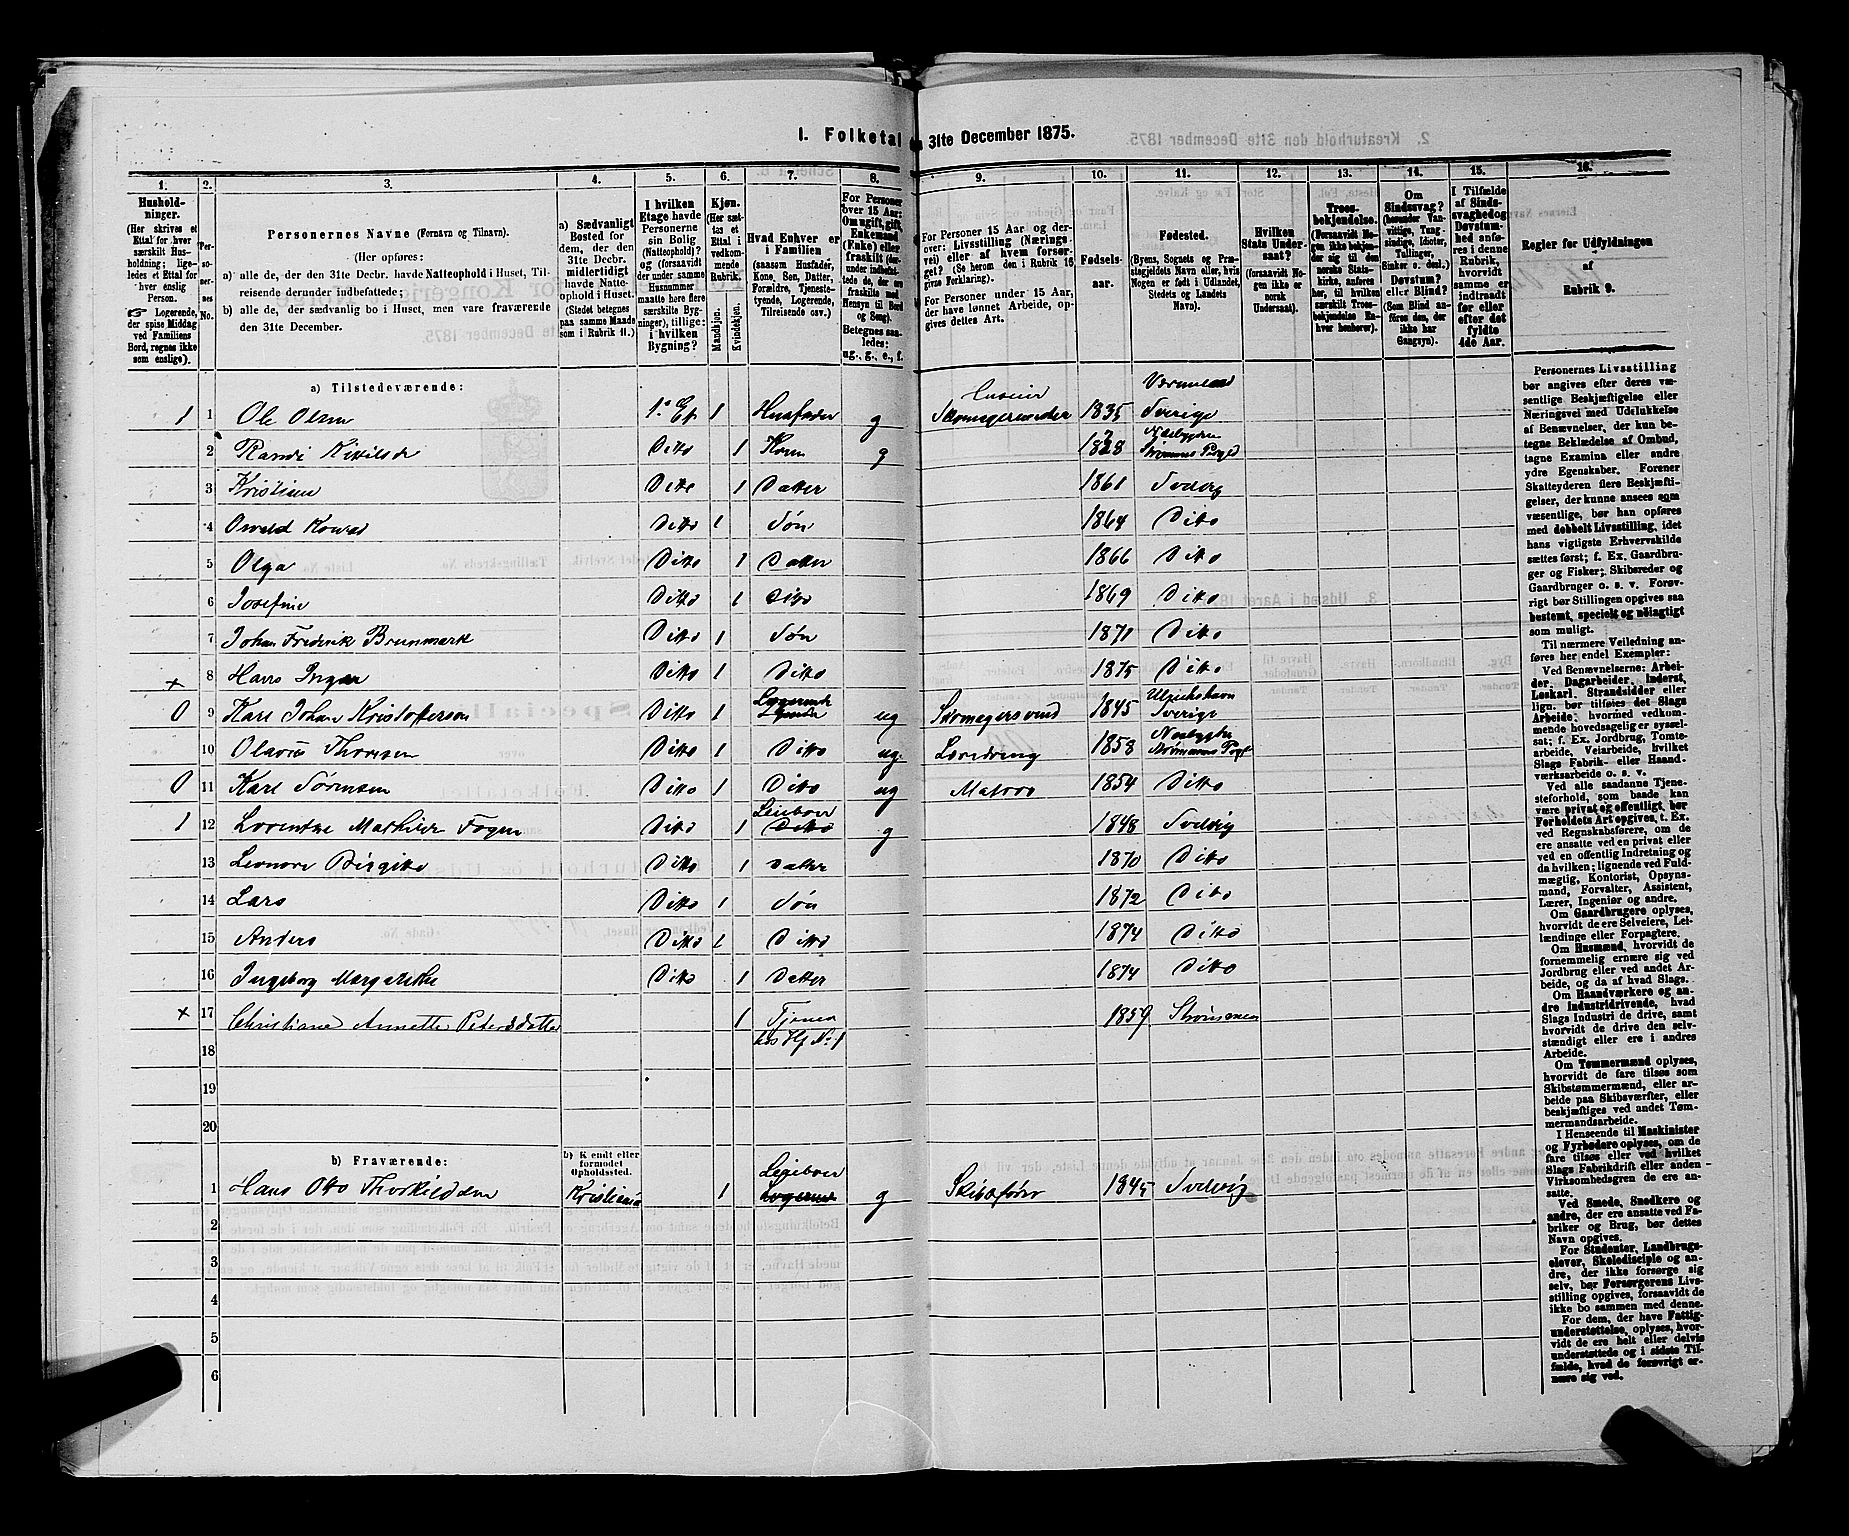 I. Folketal
31te December 1875.
1. 2. 3. 4. 5. 6. 7. 8. 9. 10. 11. 12. 13. 14. 15. 16.
Husholdninger.
(Her skrives et Ettal for hver særskilt Husholdning; ligeledes et Ettal for hver enslig Person.
☞ Logerende, der spise Middag ved Familiens Bord, regnes ikke som enslige).
Personernes No.
Personernes Navne (Fornavn og Tilnavn).
(Her opføres:
a) alle de, der den 31te Decbr. havde Natteophold i Huset, Tilreisende derunder indbefattede;
b) alle de, der sædvanlig bo i Huset, men vare fraværende den 31te December.
a) Sædvanligt Bosted for dem, der den 31te Decbr. midlertidigt havde Natteophold i Huset.
(Stedet betegnes paa samme Maade som i Rubrik 11.)
I hvilken Etage havde Personerne sin Bolig (Natteophold)? og (forsaavidt der under samme Husnummer maatte høre flere særskilte Bygninger), tillige: i hvilken Bygning?
Kjøn.
(Her sættes et Ettal i vedkommende Rubrik.)
Mandkjøn.
Kvindekjøn.
Hvad Enhver er i Familien
(saasom Husfader, Kone, Søn, Datter, Forældre, Tjenestetyende, Logerende, Tilreisende osv.)
For Personer over 15 Aar: Om ugift, gift, Enkemand (Enke) eller fraskilt
Betegnes saaledes: ug., g., e., f.
For Personer 15 Aar og derover: Livsstilling (Næringsvei) eller af hvem forsørget? (Se herom den i Rubrik 16 givne Forklaring).
For Personer under 15 Aar, der have lønnet Arbeide, opgives dettes Art.
Fødsels-aar.
Fødested.
(Byens, Sognets og Præstegjeldets Navn eller, hvis Nogen er født i Udlandet, Stedets og Landets Navn).
Hvilken Stats Undersaat?
(forsaavidt Nogen ikke er norsk Undersaat).
Troesbekjendelse.
(Forsaavidt Nogen ikke bekjender sig til den norske Statskirke, anføres her, til hvilken særskilt Troesbekjendelse Enhver henhører).
Om Sindssvag? (herunder Vanvittige, Tungsindige, Idioter, Tullinger, Sinker o. desl.) Døvstum? eller Blind? (Som Blind anføres den, der ikke har Gangsyn).
I Tilfælde af Sindssvaghed og Døvstumhed anføres i denne Rubrik, hvorvidt samme er indtraadt før eller efter det fyldte 4de Aar.
Regler for Udfyldningen
af
Rubrik 9.
a) Tilstedeværende:
Huseier Værmeland
1 1 Ole Olsen 1. Et 1 Husfader g Skomagermester 1835 Sverige
2 Randi Kittilsdr Ditto 1 Kone g 1828 Næsbygden Strømms Prgjd
3 Kristiane Ditto 1 Datter 1861 Svelvig
4 Osvald Konrad Ditto 1 Søn 1864 Ditto
5 Olga Ditto 1 Datter 1866 Ditto
6 Josefine Ditto 1 Ditto 1869 Ditto
7 Johan Fredrik Brunmark Ditto 1 Søn 1871 Ditto
8 Hans Ingvar Ditto 1 Ditto 1875 Ditto
x
0 9 Karl Johan Kristofferson Ditto 1 Logerende ug Skomagersvend 1845 Ulricehavn Sverige
10 Olavus Thoresen Ditto 1 Ditto ug. Læredreng 1858 Nesbygden Strømmens Prgj
0 11 Karl Sørensen Ditto 1 Ditto ug Matros 1854 Ditto
1 12 Lorentze Mathilde Fogen Ditto 1 Leieboer Ditto g 1848 Svelvig
13 Leonore Birgitte Ditto 1 Datter 1870 Ditto
14 Lars Ditto 1 Søn 1872 Ditto
15 Anders Ditto 1 Ditto 1874 Ditto
16 Ingeborg Margarethe Ditto 1 Datter 1874 Ditto
x 17 Christiane Annette Petersdatter 1 Tjener 1859 Strømmen
hos Hf No. 1
18
19
20
b) Fraværende:
b) Kjendt eller formodet Opholdssted.
1 Hans Otto Thorkildsen Kristiania 1 Leieboer Logerende g Skibsfører 1845 Svelvig
2
3
4
5
6
Personernes Livsstilling bør angives efter deres væsentlige Beskjæftigelse eller Næringsvei med Udelukkelse af Benævnelser, der kun betegne Beklædelse af Ombud, tagne Examina eller andre ydre Egenskaber. Forener Skatteyderen flere Beskjæftigelser, der kunne ansees som væsentlige, bør han opføres med dobbelt Livsstilling, idet hans vigtigste Erhvervskilde sættes først; f. Ex. Gaardbruger og Fisker; Skibsreder og Gaardbruger o. s. v. Forøvrigt bør Stillingen opgives saa bestemt, specielt og nøiagtigt som muligt.
Til nærmere Veiledning anføres her endel Exempler:
Ved Benævnelserne: Arbeider, Dagarbeider, Inderst, Løskarl, Strandsidder eller lign. bør tilføies det Slags Arbeide; hvormed vedkommende hovedsagelig er sysselsat; f. Ex. Jordbrug, Tomtearbeide, Veiarbeide, hvilket Slags Fabrik- eller Haandværksarbeide o. s. v.
Ved alle saadanne Tjenesteforhold, som baade kan være privat og offentligt, bør Forholdets Art opgives, t. Ex. ved Regnskabsførere, om de ere ansatte ved en privat eller ved en offentlig Indretning og da hvilken; lignende ved Fuldmægtig, Kontorist, Opsynsmand, Forvalter, Assistent, Lærer, Ingeniør og andre.
Om Gaardbrugere oplyses, hvorvidt de ere Selveiere, Leilændinge eller Forpagtere.
Om Husmænd, hvorvidt de fornemmelig ernære sig ved Jordbrug eller ved andet Arbeide, og da af hvad Slags.
Om Haandværkere og andre Industridrivende, hvad Slags Industri de drive, samt hvorvidt de drive den selvstændigt eller ere i andres Arbeide.
Om Tømmermænd oplyses, hvorvidt de fare tilsøs som Skibstømmermænd, eller arbeide paa Skibsværfter, eller beskjæftiges ved andet Tømmermandsarbeide.
I Henseende til Maskinister og Fyrbødere oplyses, om de fare tilsøs eller ved hvilket Slags Fabrikdrift eller anden Virksomhedsgren de ere ansatte.
Ved Smede, Snedkere og andre, der ere ansatte ved Fabriker og Brug, bør dettes Navn opgives.
For Studenter, Landbrugselever, Skoledisciple og andre, der ikke forsørge sig selv, bør Forsørgerens Livsstilling opgives, forsaavidt de ikke bo sammen med denne.
For dem, der have Fattigunderstøttelse, oplyses, hvorvidt de ere helt eller delvis understøttede og i sidste Tilfælde, hvad de forøvrigt ernære sig ved.